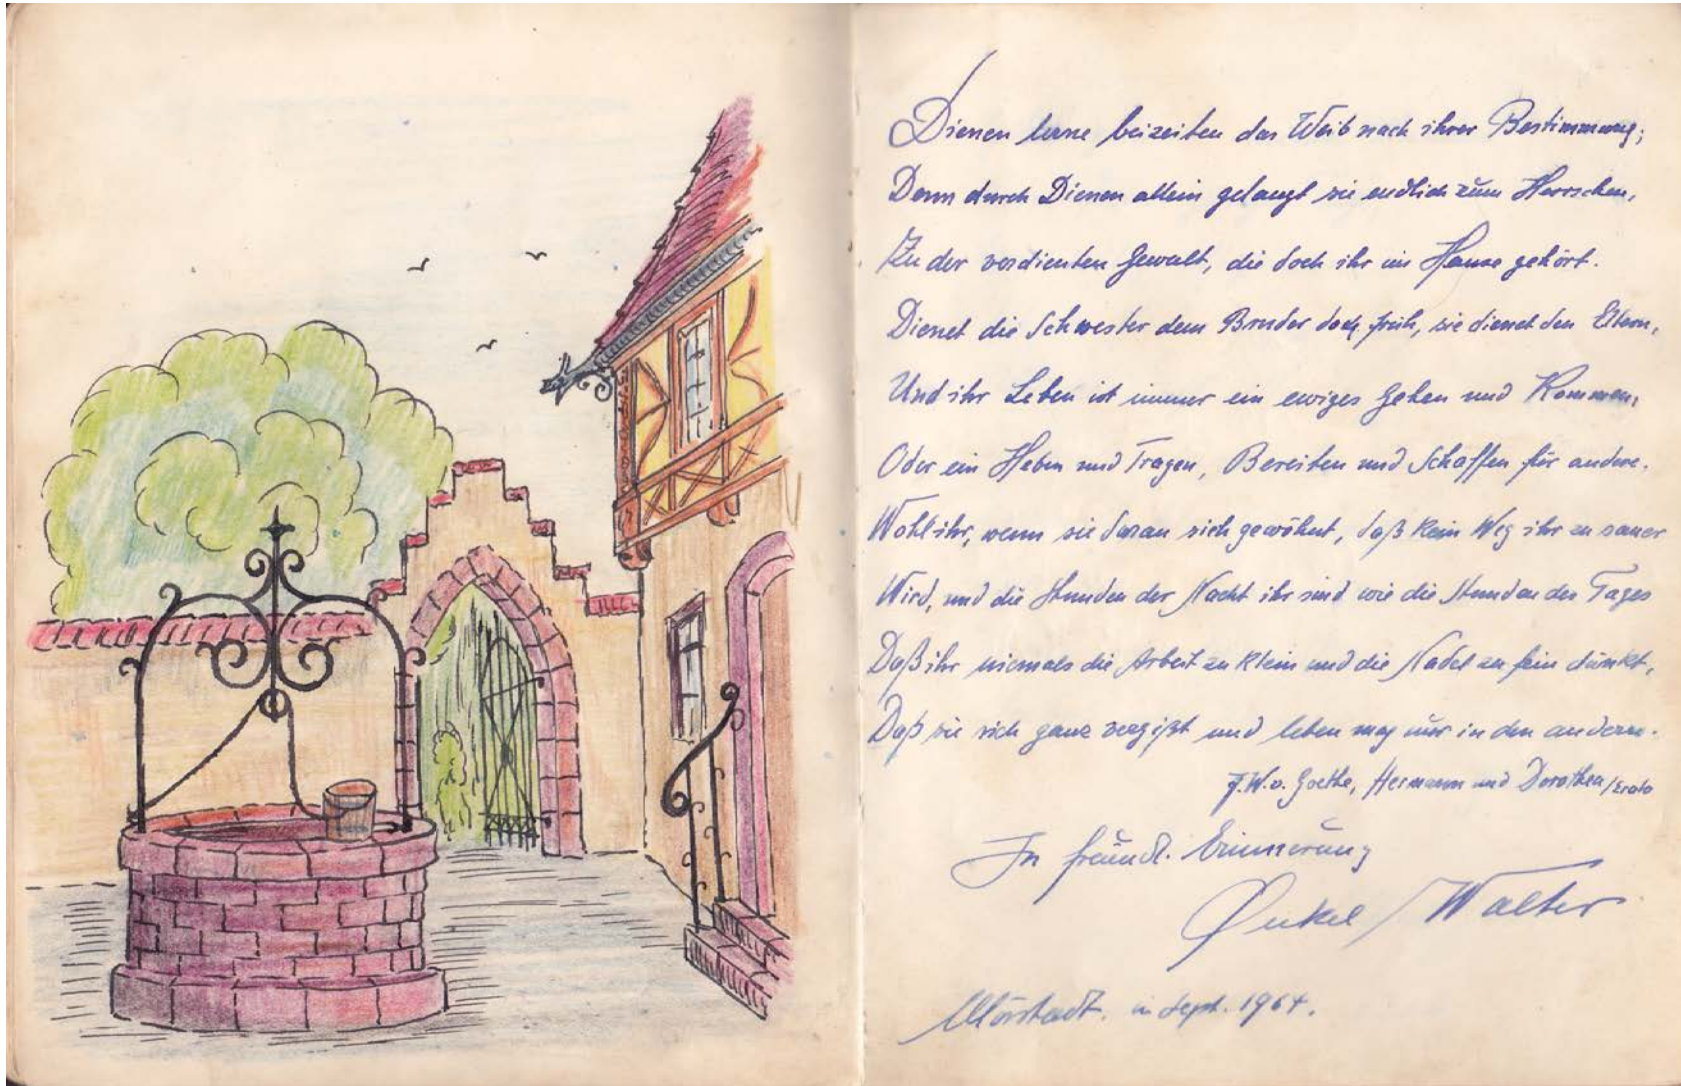 Dienen lerne beizeiten das Weib nach ihrer Bestimmung;
Denn durch Dienen allein gelangt sie endlich zum Herrschen,
Zu der verdienten Gewalt, die doch ihr im Hause gehört.
Dienet die Schwester dem Bruder doch früh, sie dienet den Eltern,
Und ihr Leben ist immer ein ewiges Gehen und Kommen,
Oder ein Heben und Tragen, Bereiten und Schaffen für andere.
Wohl ihr, wenn sie daran sich gewöhnt, daß kein Weg ihr zu sauer
Wird, und die Stunden der Nacht ihr sind wie die Stunden des Tages
Daß ihr niemals die Arbeit zu klein und die Nadel zu fein dünkt,
Daß sie sich ganz vergißt und leben mag nur in den andern.
J.W.v. Goethe, Hermann und Dorothea/Erato
In freundl. Erinnerung
Onkel Walter
Mörstadt. im Sept. 1964.